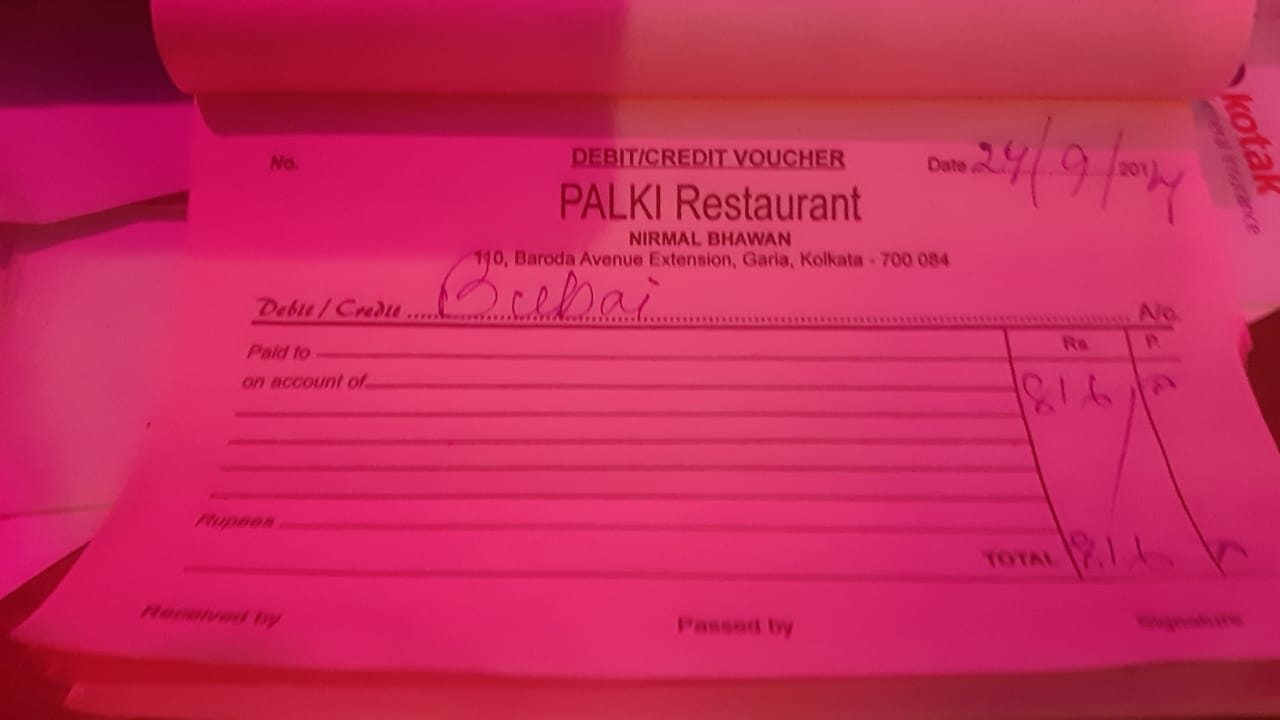 No.
DEBIT/CREDIT VOUCHER
Date 24/9/201
PALKI Restaurant
NIRMAL BHAWAN
110, Baroda Avenue Extension, Garia, Kolkata - 700 084
Debit / Credit Bubai A/c.
Paid to
Rs. P.
on account of
816
Rupees
TOTAL 816
Received by Passed by Signature
kotak
eral Insurance